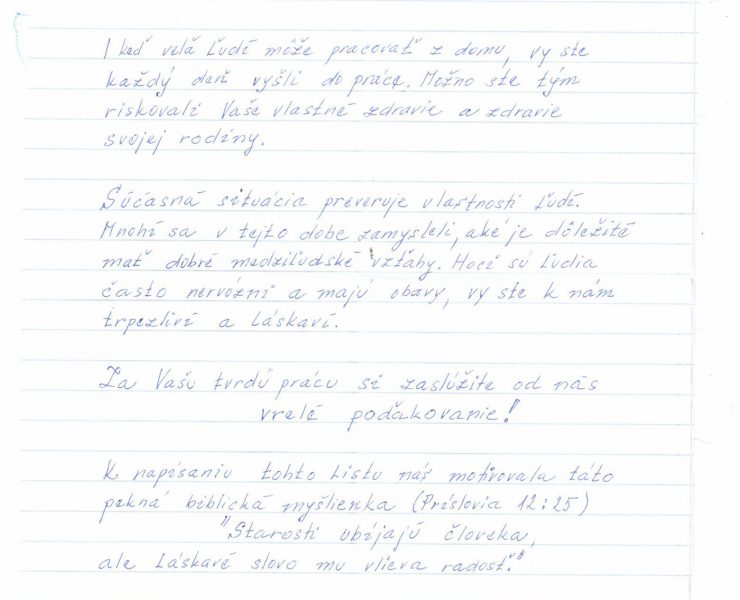 I keď veľa ľudí môže pracovať z domu, vy ste
každý deň vyšli do práce. Možno ste tým
riskovali Vaše vlastné zdravie a zdravie
svojej rodiny.
Súčasná situácia preveruje vlastnosti ľudí.
Mnohí sa v tejto dobe zamysleli, aké je dôležité
mať dobré medziľudské vzťahy. Hoci sú ľudia
často nervózni a majú obavy, vy ste k nám
trpezliví a láskaví.
Za Vašu tvrdú prácu si zaslúžite od nás
vrelé poďakovanie!
K napísaniu tohto listu nás motivovala táto
pekná biblická myšlienka (Príslovia 12:25)
"Starosti ubíjajú človeka,
ale láskavé slovo mu vlieva radosť."